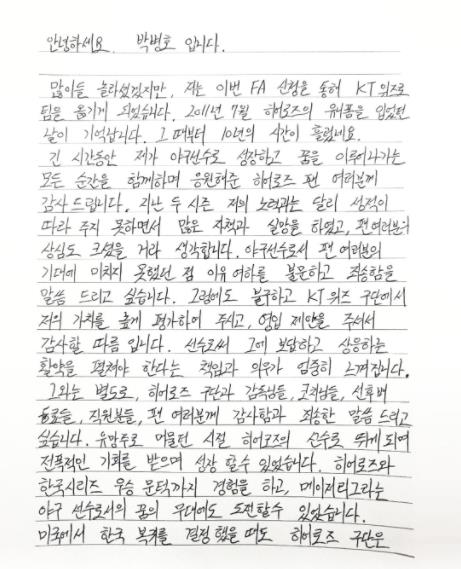 안녕하세요. 박병호 입니다.
많이들 놀라셨겠지만, 저는 이번 FA 신청을 통해 KT위즈로
팀을 옮기게 되었습니다. 2011년 7월 히어로즈의 유니폼을 입었던
날이 기억납니다. 그 때부터 10년의 시간이 흘렀네요.
긴 시간동안 제가 야구선수로 성장하고 꿈을 이루어나가는
모든 순간을 함께하며 응원해준 히어로즈 팬 여러분께
감사드립니다. 지난 두 시즌 저의 노력과는 달리 성적이
따라 주지 못하면서 많은 자책과 실망을 하였고, 팬여러분의
상심도 크셨을 거라 생각합니다. 야구선수로서 팬 여러분의
기대에 미치지 못했던 점 이유 여하를 불문하고 죄송함을
말씀 드리고 싶습니다. 그럼에도 불구하고 KT위즈 구단에서
저의 가치를 높게 평가하여 주시고, 영입 제안을 주셔서
감사할 따름 입니다. 선수로써 그에 보답하고 상응하는
활약을 펼쳐야 한다는 책임과 의무가 엄중히 느껴집니다.
그와는 별도로, 히어로즈 구단과 감독님들, 코치님들, 선후배
동료들, 직원분들, 팬 여러분께 감사함과 죄송한 말씀 드리고
싶습니다. 유망주로 머물던 시절 히어로즈의 선수로 뛰게 되며
전폭적인 기회를 받으며 성장 할수 있었습니다. 히어로즈와
한국시리즈 우승 문턱까지 경험을 하고, 메이저리그라는
야구 선수로서의 꿈의 무대에도 도전할수 있었습니다.
미국에서 한국 복귀를 결정 했을 때도 히어로즈 구단은